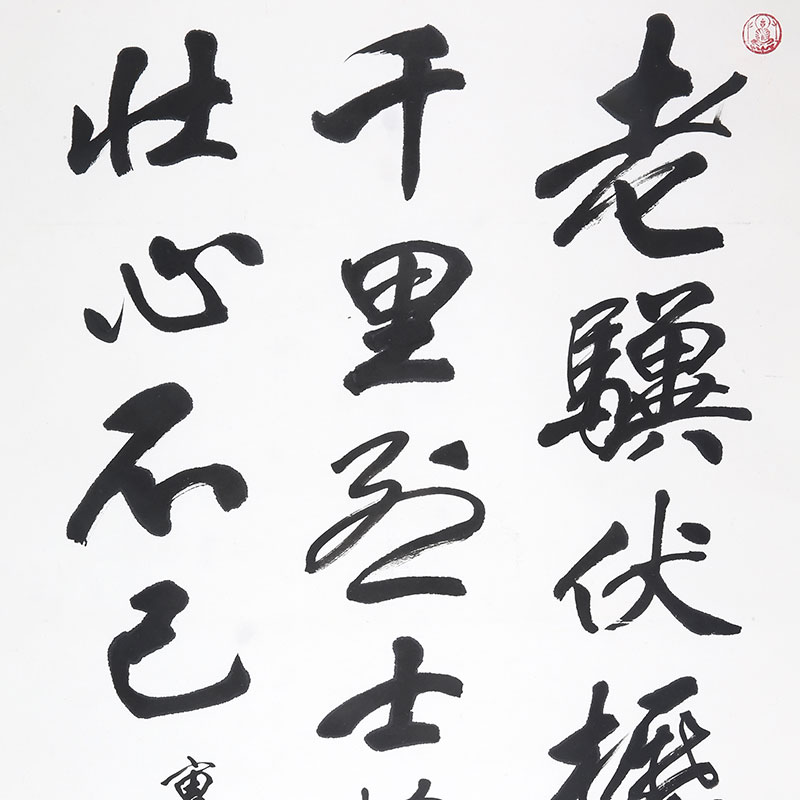 老驥伏
千里烈士
壮心不已